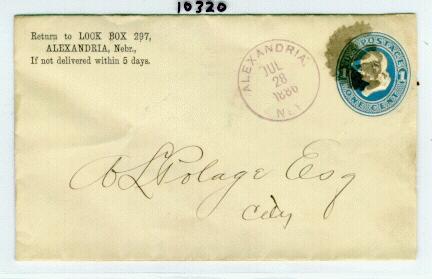 10320
Return to LOCK BOX 297,
ALEXANDRIA, Nebr.,
If not delivered within 5 days.
ALEXANDRIA
JUL
28
1886
NEB
U.S. POSTAGE
1 1
ONE CENT
A L Polage Esq
City